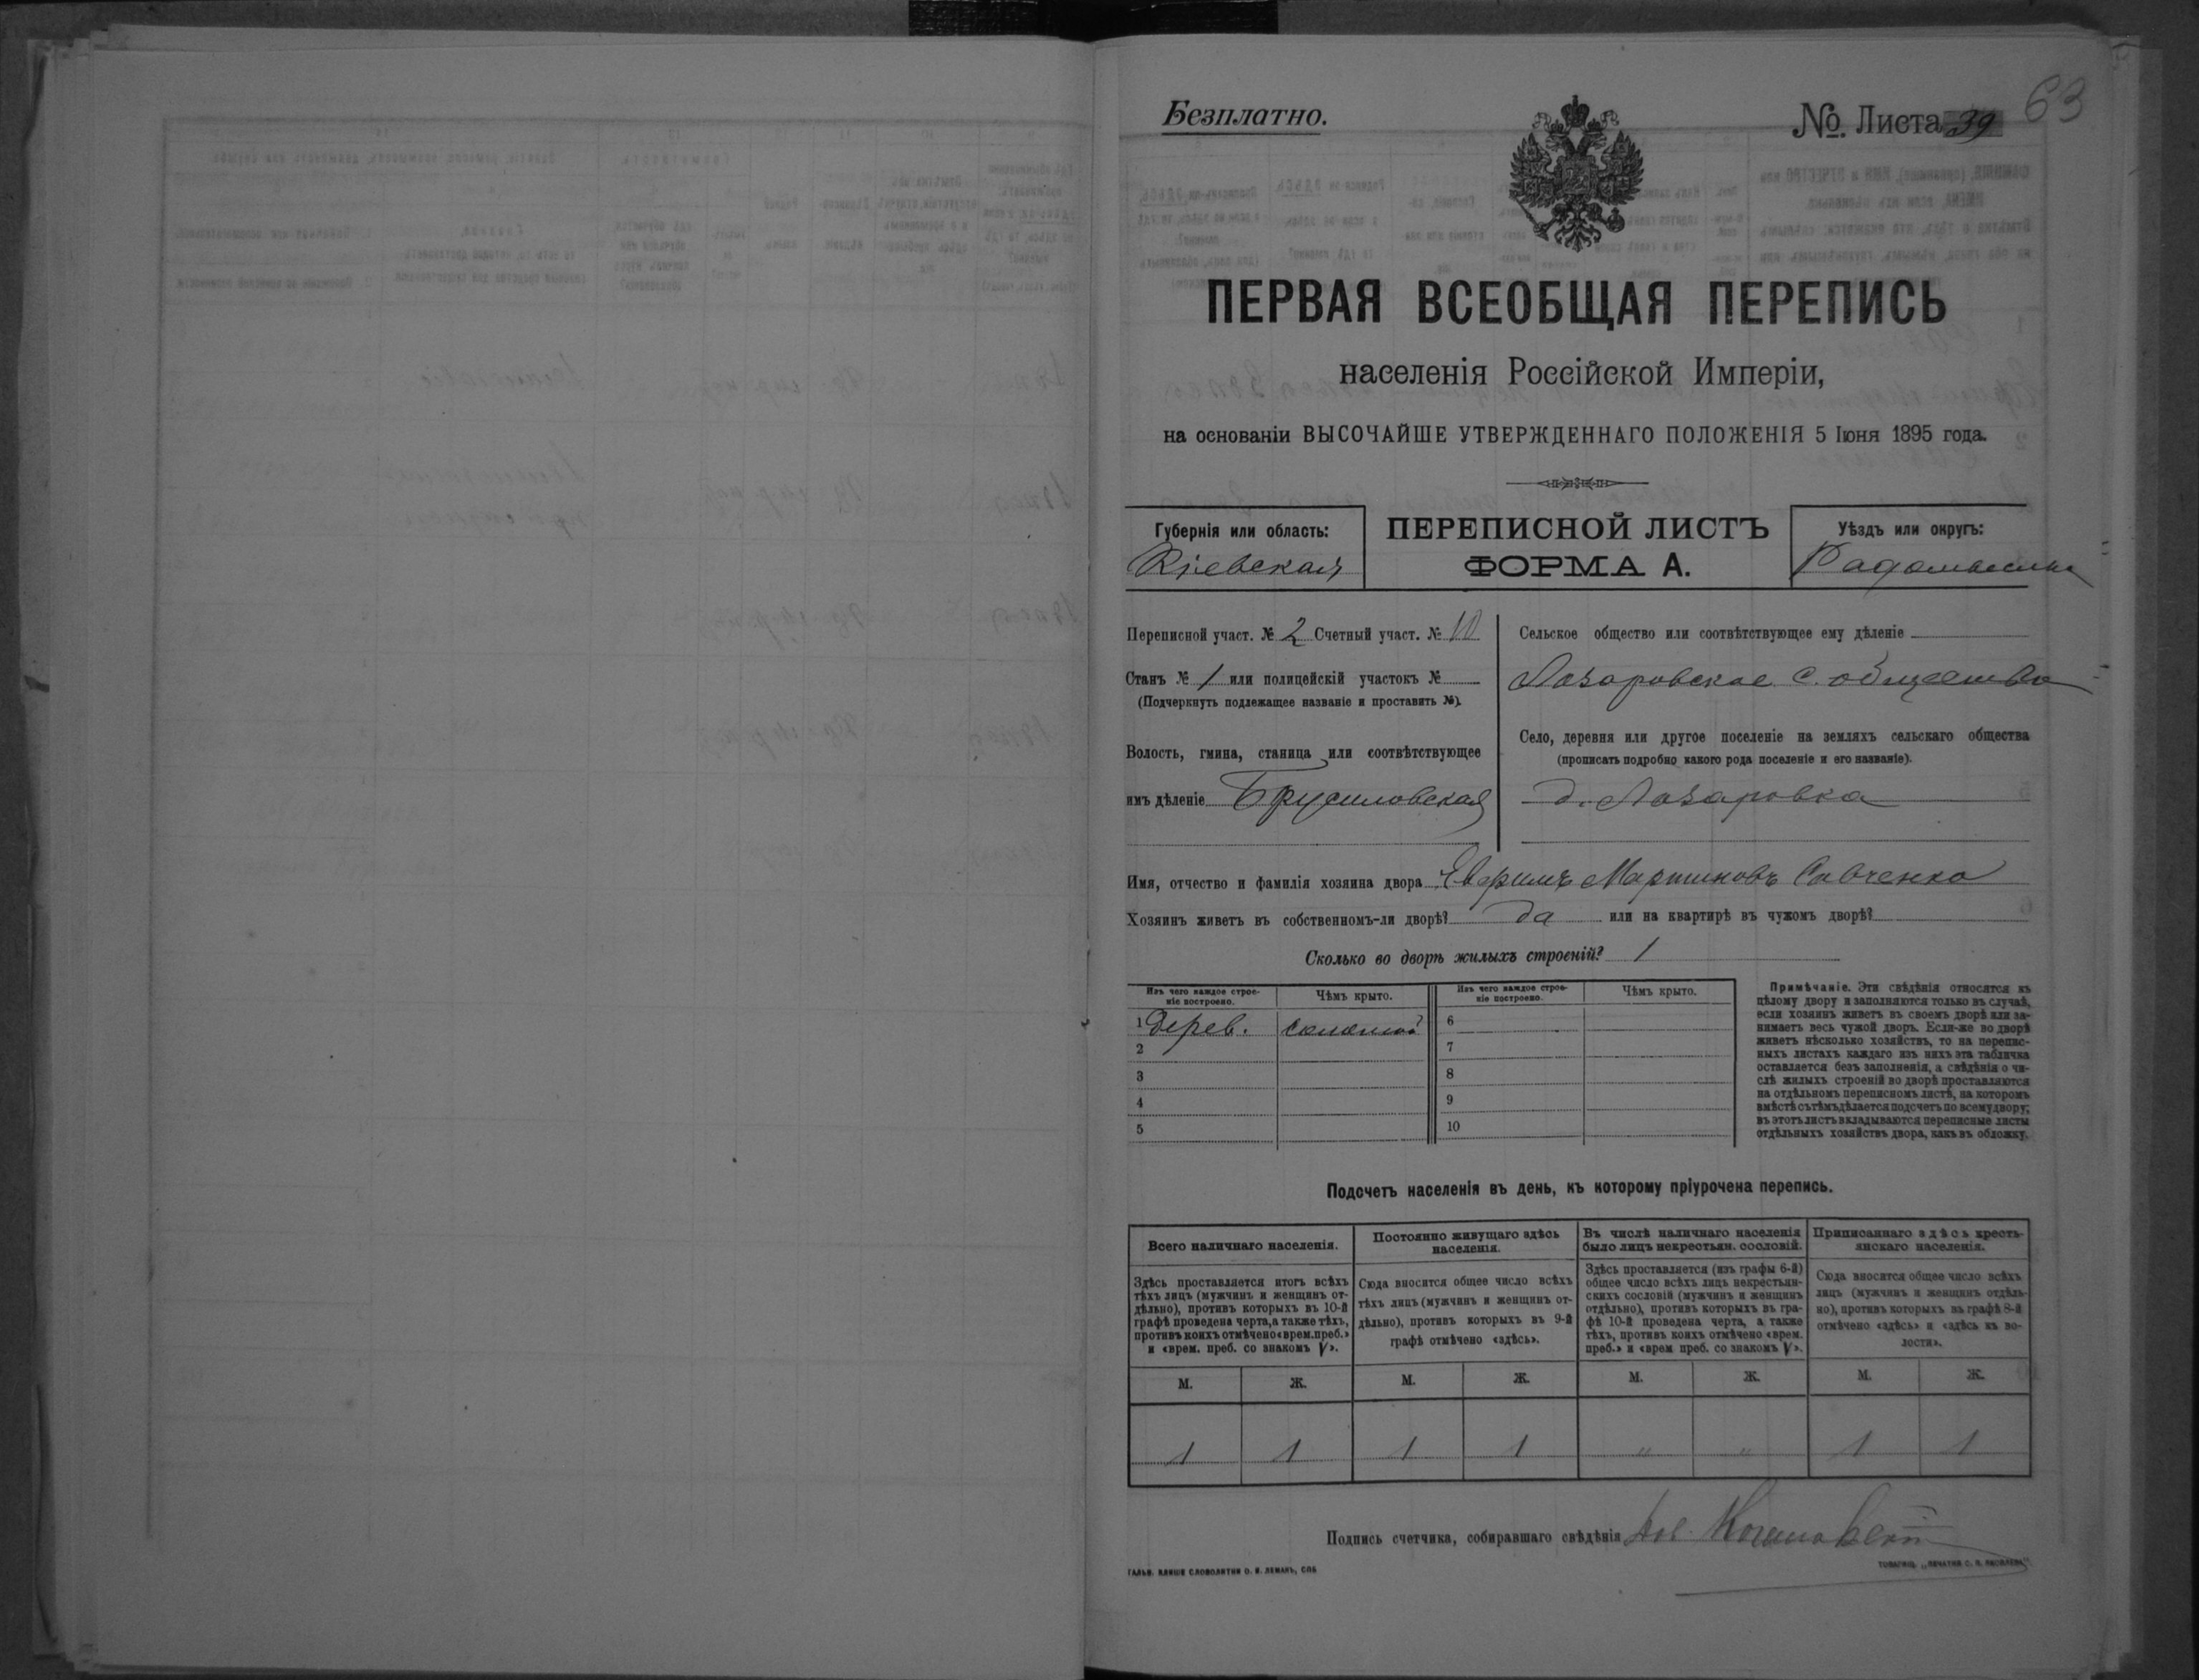 Безплатно.
№ Листа 39
63
ПЕРВАЯ ВСЕОБЩАЯ ПЕРЕПИСЬ
населенія Россійской Имперіи,
на основаніи ВЫСОЧАЙШЕ УТВЕРЖДЕННАГО ПОЛОЖЕНІЯ 5 Іюня 1895 года.
Губернія или область:
Кіевская
ПЕРЕПИСНОЙ ЛИСТЪ
ФОРМА А.
Уѣздъ или округъ:
Переписной участ. № 2 Счетный участ. № 10
Станъ № 1 или полицейскій участокъ №
(Подчеркнуть подлежащее названіе и проставить №).
Волость, гмина, станица или соотвѣтствующее
имъ дѣленіе Брусиловская
Сельское общество или соотвѣтствующее ему дѣленіе
Лазаровское с. общество
Село, деревня или другое поселеніе на земляхъ сельскаго общества
(прописать подробно какого рода поселеніе и его названіе).
д. Лазаровка
Имя, отчество и фамилія хозяина двора Мартиновъ Савченко
Хозяинъ живетъ въ собственномъ-ли дворѣ? да или на квартирѣ въ чужомъ дворѣ?
Сколько во дворѣ жилыхъ строеній? 1
Изъ чего каждое строе-
ніе построено.
Чѣмъ крыто.
1 Дерев. соломой
2
3
4
5
Изъ чего каждое строе-
ніе построено.
Чѣмъ крыто.
6
7
8
9
10
Примѣчаніе. Эти свѣдѣнія относятся къ
цѣлому двору и заполняются только въ случаѣ,
если хозяинъ живетъ въ своемъ дворѣ или за-
нимаетъ весь чужой дворъ. Если-же во дворѣ
живетъ нѣсколько хозяйствъ, то на перепис-
ныхъ листахъ каждаго изъ нихъ эта табличка
оставляется безъ заполненія, а свѣдѣнія о чи-
слѣ жилыхъ строеній во дворѣ проставляются
на отдѣльномъ переписномъ листѣ, на которомъ
вмѣстѣ съ тѣмъ дѣлается подсчетъ по всему двору;
въ этотъ листъ вкладываются переписные листы
отдѣльныхъ хозяйствъ двора, какъ въ обложку.
Подсчетъ населенія въ день, къ которому пріурочена перепись.
Всего наличнаго населенія.
Здѣсь проставляется итогъ всѣхъ
тѣхъ лицъ (мужчинъ и женщинъ от-
дѣльно), противъ которыхъ въ 10-й
графѣ проведена черта, а также тѣхъ,
противъ коихъ отмѣчено «врем. преб.»
и «врем. преб. со знакомъ V».
Постоянно живущаго здѣсь
населенія.
Сюда вносится общее число всѣхъ
тѣхъ лицъ (мужчинъ и женщинъ от-
дѣльно), противъ которыхъ въ 9-й
графѣ отмѣчено «здѣсь».
Въ числѣ наличнаго населенія
было лицъ некрестьян. сословій.
Здѣсь проставляется (изъ графы 6-й)
общее число всѣхъ лицъ некрестьян-
скихъ сословій (мужчинъ и женщинъ
отдѣльно), противъ которыхъ въ гра-
фѣ 10-й проведена черта, а также
тѣхъ, противъ коихъ отмѣчено «врем.
преб.» и «врем преб. со знакомъ V».
Приписаннаго здѣсь кресть-
янскаго населенія.
Сюда вносится общее число всѣхъ
лицъ (мужчинъ и женщинъ отдѣль-
но), противъ которыхъ въ графѣ 8-й
отмѣчено «здѣсь» и «здѣсь къ во-
лости».
М. Ж. М. Ж. М. Ж. М. Ж.
1 1 1 1 " " 1 1
Подпись счетчика, собиравшаго свѣдѣнія
ГАЛЬВ. КЛИШЕ СЛОВОЛИТНИ О. И. ЛЕМАНЪ, СПБ
ТОВАРИЩ. „ПЕЧАТНЯ С. П. ЯКОВЛЕВА"